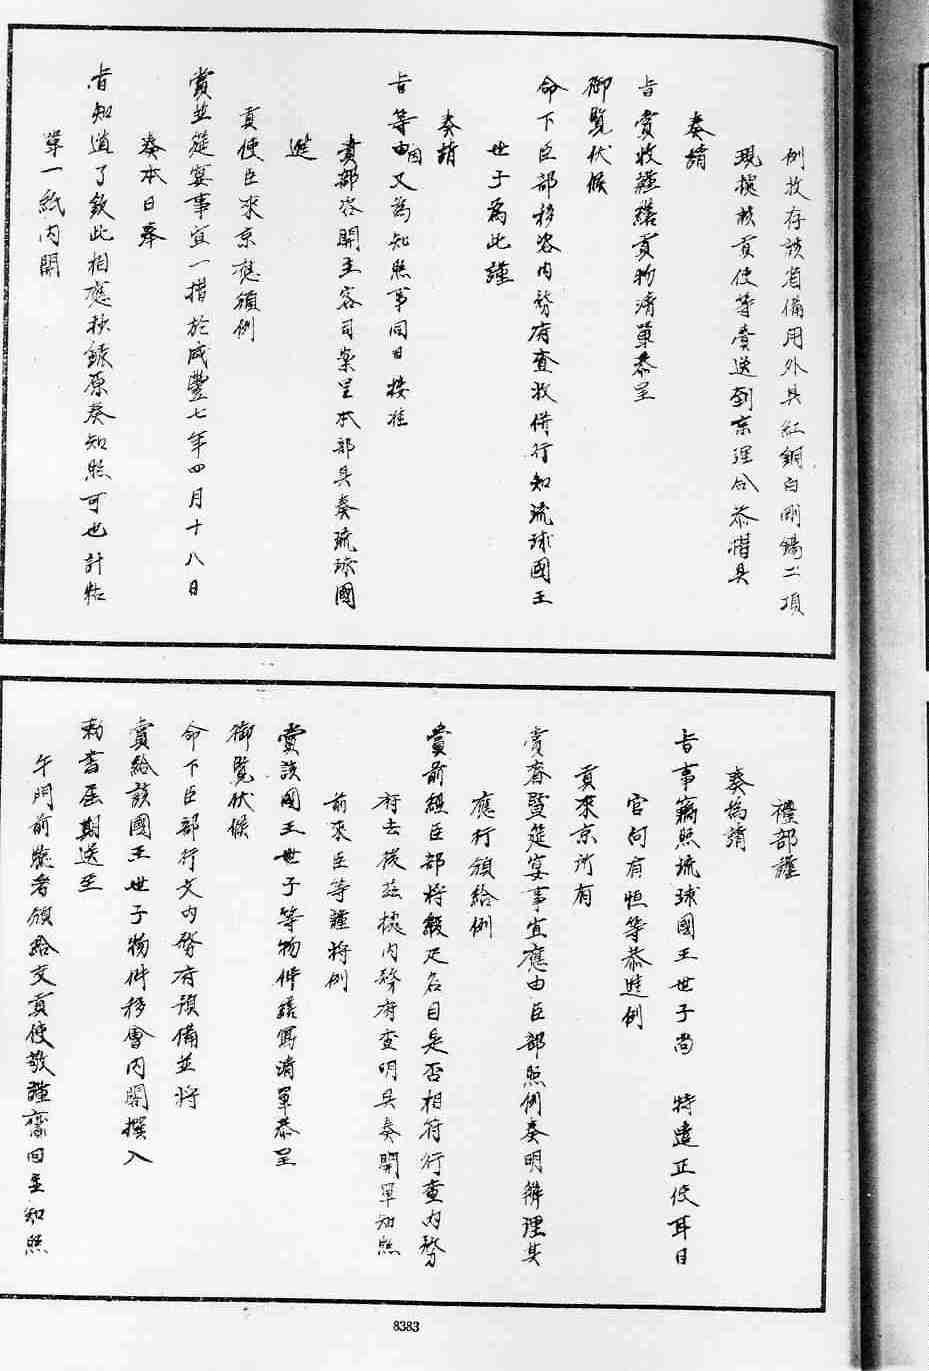 例收存該省備用外其紅銅白剛錫二項
現據該貢使等賫送到京理合恭摺具
奏請
旨賞收謹繕貢物清單恭呈
御覽伏候
命下臣部移咨内務府查收併行知琉球國王
世子為此謹
奏請
旨等因又為知照事同日接准
貴部咨開主客司案呈本部具奏琉球國
進
貢使臣來京應頒例
賞並筵宴事宜一摺於咸豐七年四月十八日
奏本日奉
旨知道了欽此相應抄錄原奏知照可也計粘
單一紙内開
禮部謹
奏為請
旨事竊照琉球國王世子尚 特遣正使耳目
官向有恒等恭進例
貢來京所有
賞賚暨筵宴事宜應由臣部照例奏明辦理其
應行頒給例
賞前經臣部將緞疋名目是否相符行查内務
府去後茲據内務府查明具奏開單知照
前來臣等謹將例
賞該國王世子等物件繕寫清單恭呈
御覽伏候
命下臣部行文内務府預備並將
賞給該國王世子物件移會内閣撰入
勅書屆期送至
午門前驗看頒給交貢使敬謹齎回至知照
8383